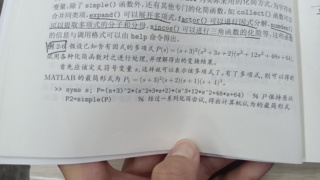 变量,除了simple()函数外,还有其他专门的化简函数,如collect()函数可以
合并同类项,expand()可以展开多项式,factor()可以进行因式分解,numden()
可以提取多项式的分子和分母,sincos()可以进行三角函数的化简等,这些函数
的信息与调用格式可以由help命令得出。
假设已知含有因式的多项式P(s)=(s+3)²(s²+3s+2)(s³+12s²+48s+64),
试用各种化简函数对之进行处理,并理解得出的变换结果。
首先应该定义符号变量s,这样就可以表示该多项式了。有了多项式,则可以得出
MATLAB的最简形式为
>> syms s; P=(s+3)^2*(s^2+3*s+2)*(s^3+12*s^2+48*s+64) %
P2=simple(P) % 经过一系列化简尝试,得出计算机认为的最简形式